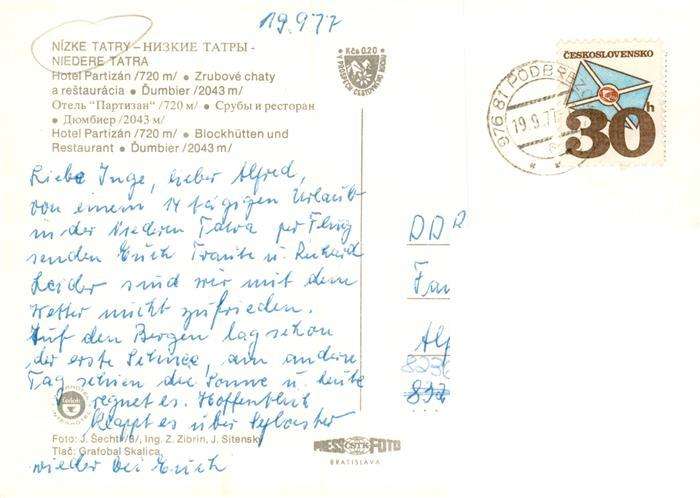 19.9.77
NÍZKE TATRY - НИЗКИЕ ТАТРЫ -
NIEDERE TATRA
Hotel Partizán /720 m/ • Zrubové chaty
a reštaurácia • Ďumbier /2043 m/
Отель "Партизан" /720 м/ • Срубы и ресторан
• Дюмбиер /2043 м/
Hotel Partizán /720 m/ • Blockhütten und
Restaurant • Ďumbier /2043 m/
Liebe Inge, lieber Alfred,
von einem 14 tägigen Urlaub
in der Niederen Tatra per Flug
senden Euch Traute u. Richard
Leider sind wir mit dem
Wetter nicht zufrieden.
Auf den Bergen lag schon
der erste Schnee, am andern
Tag schien die Sonne u. heute
regnet es. Hoffentlich
klappt es über Sylvester
wieder bei Euch
Foto: J. Šechtl /3/, Ing. Z. Zibrin, J. Sitenský
Tlač: Grafobal Skalica,
Kčs 0.20
ČESKOSLOVENSKO
30 h
976 81 PODBREZ
19.9.77
DDR
Fam
Alf
PRESSFOTO
ČSTK
BRATISLAVA